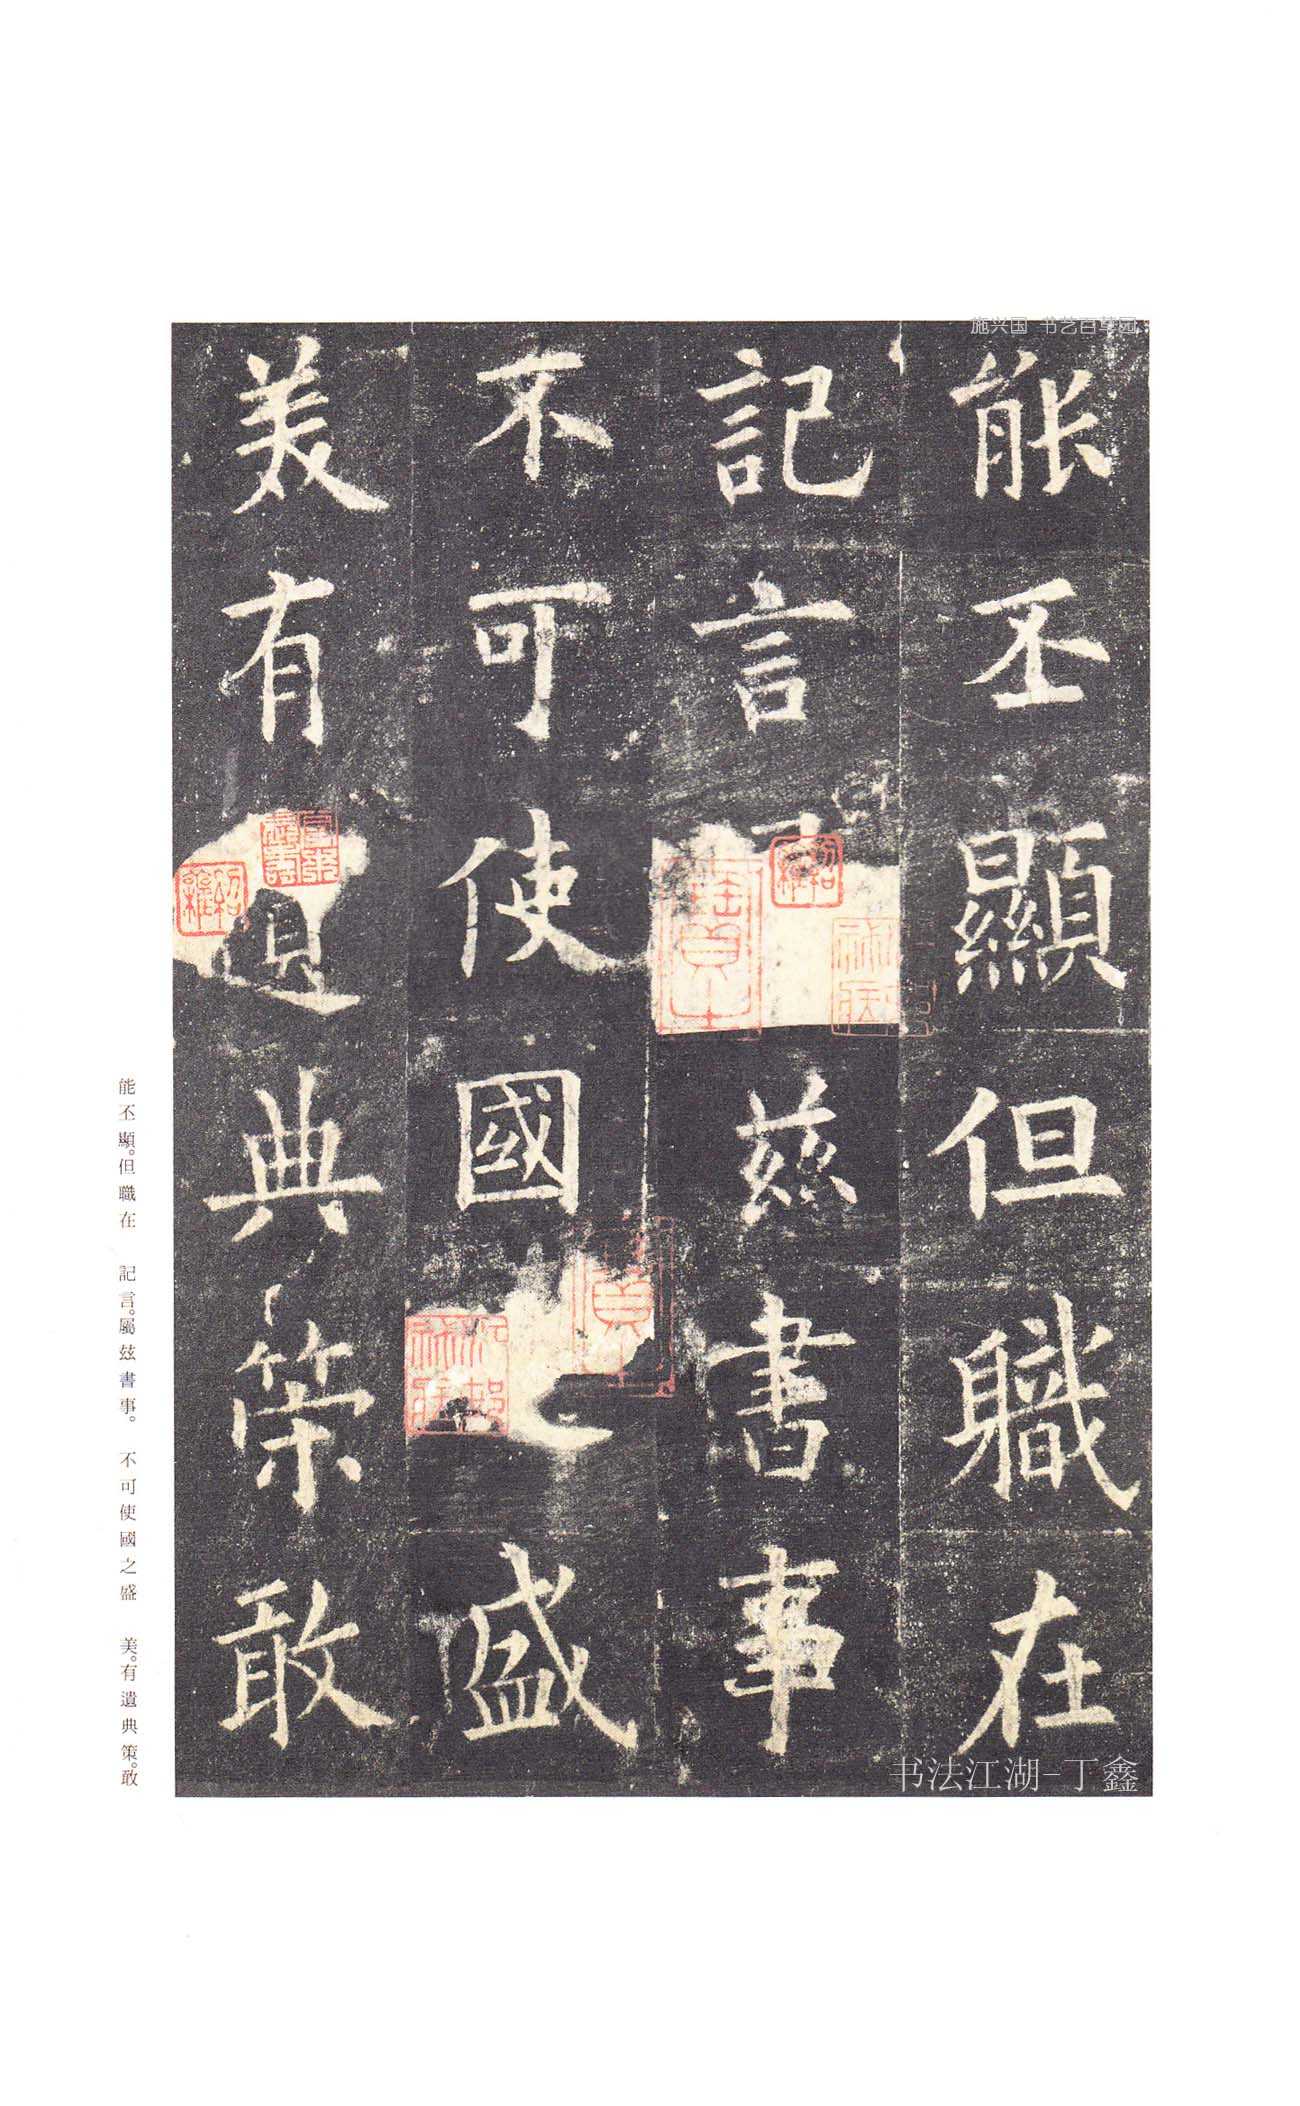 施兴国 书艺百草园
能丕顯但職在
記言茲書事
不可使國之盛
美有遺典策敢
能丕顯。但職在　記言。屬茲書事。　不可使國之盛　美。有遺典策。敢
书法江湖-丁鑫